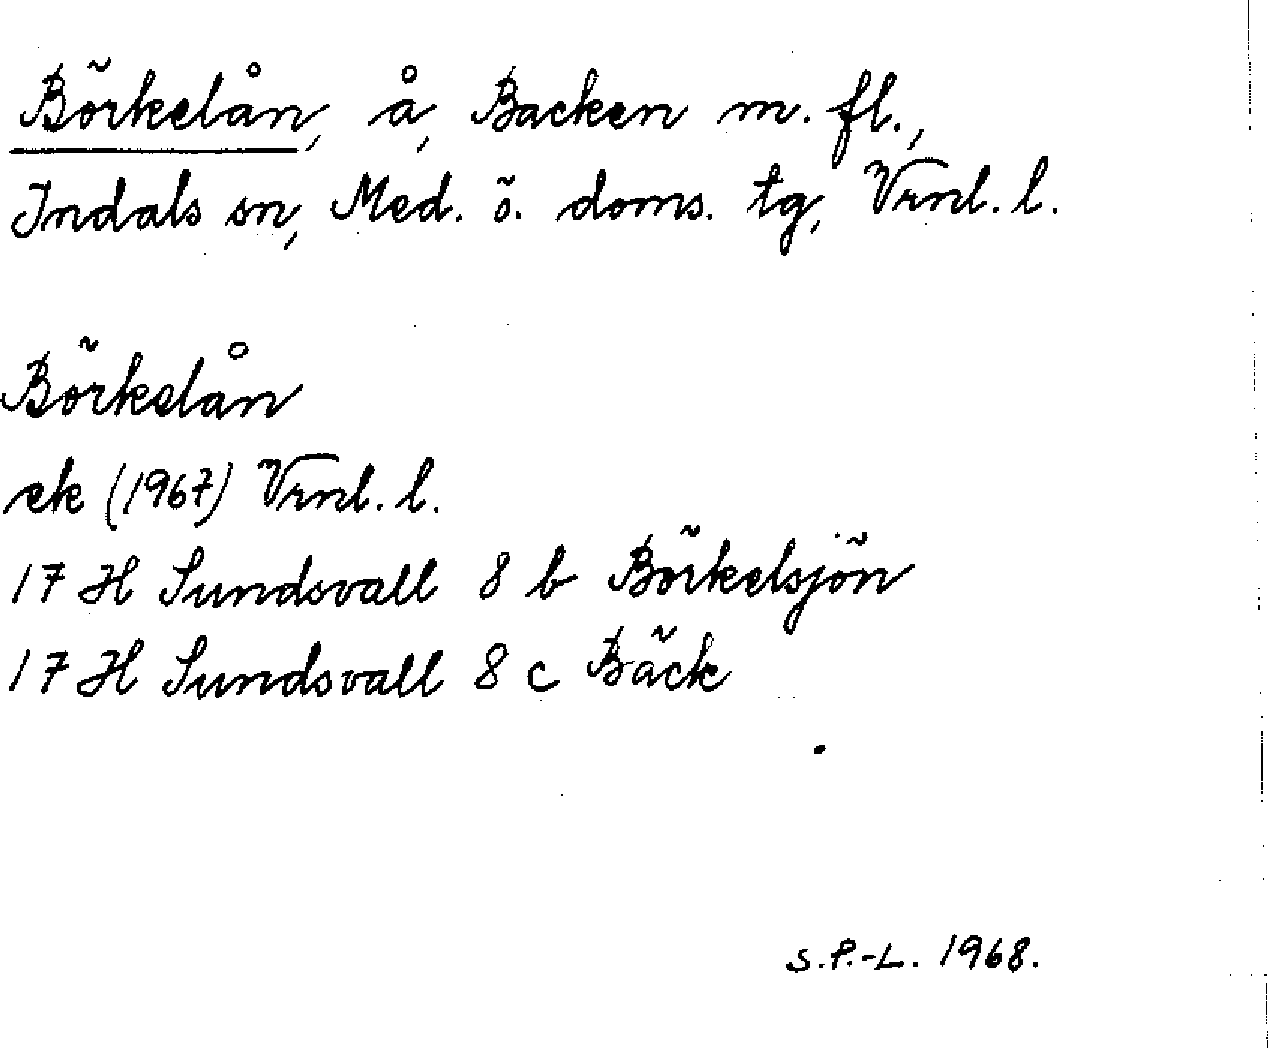 Börkelån, å, Backen m. fl.,
Indals sn, Med. ö. doms. tg, Vrnl. l.
Börkelån
ek (1967) Vrnl. l.
17 H Sundsvall 8 b Börkelsjön
17 H Sundsvall 8 c Bäck
S.P.-L. 1968.